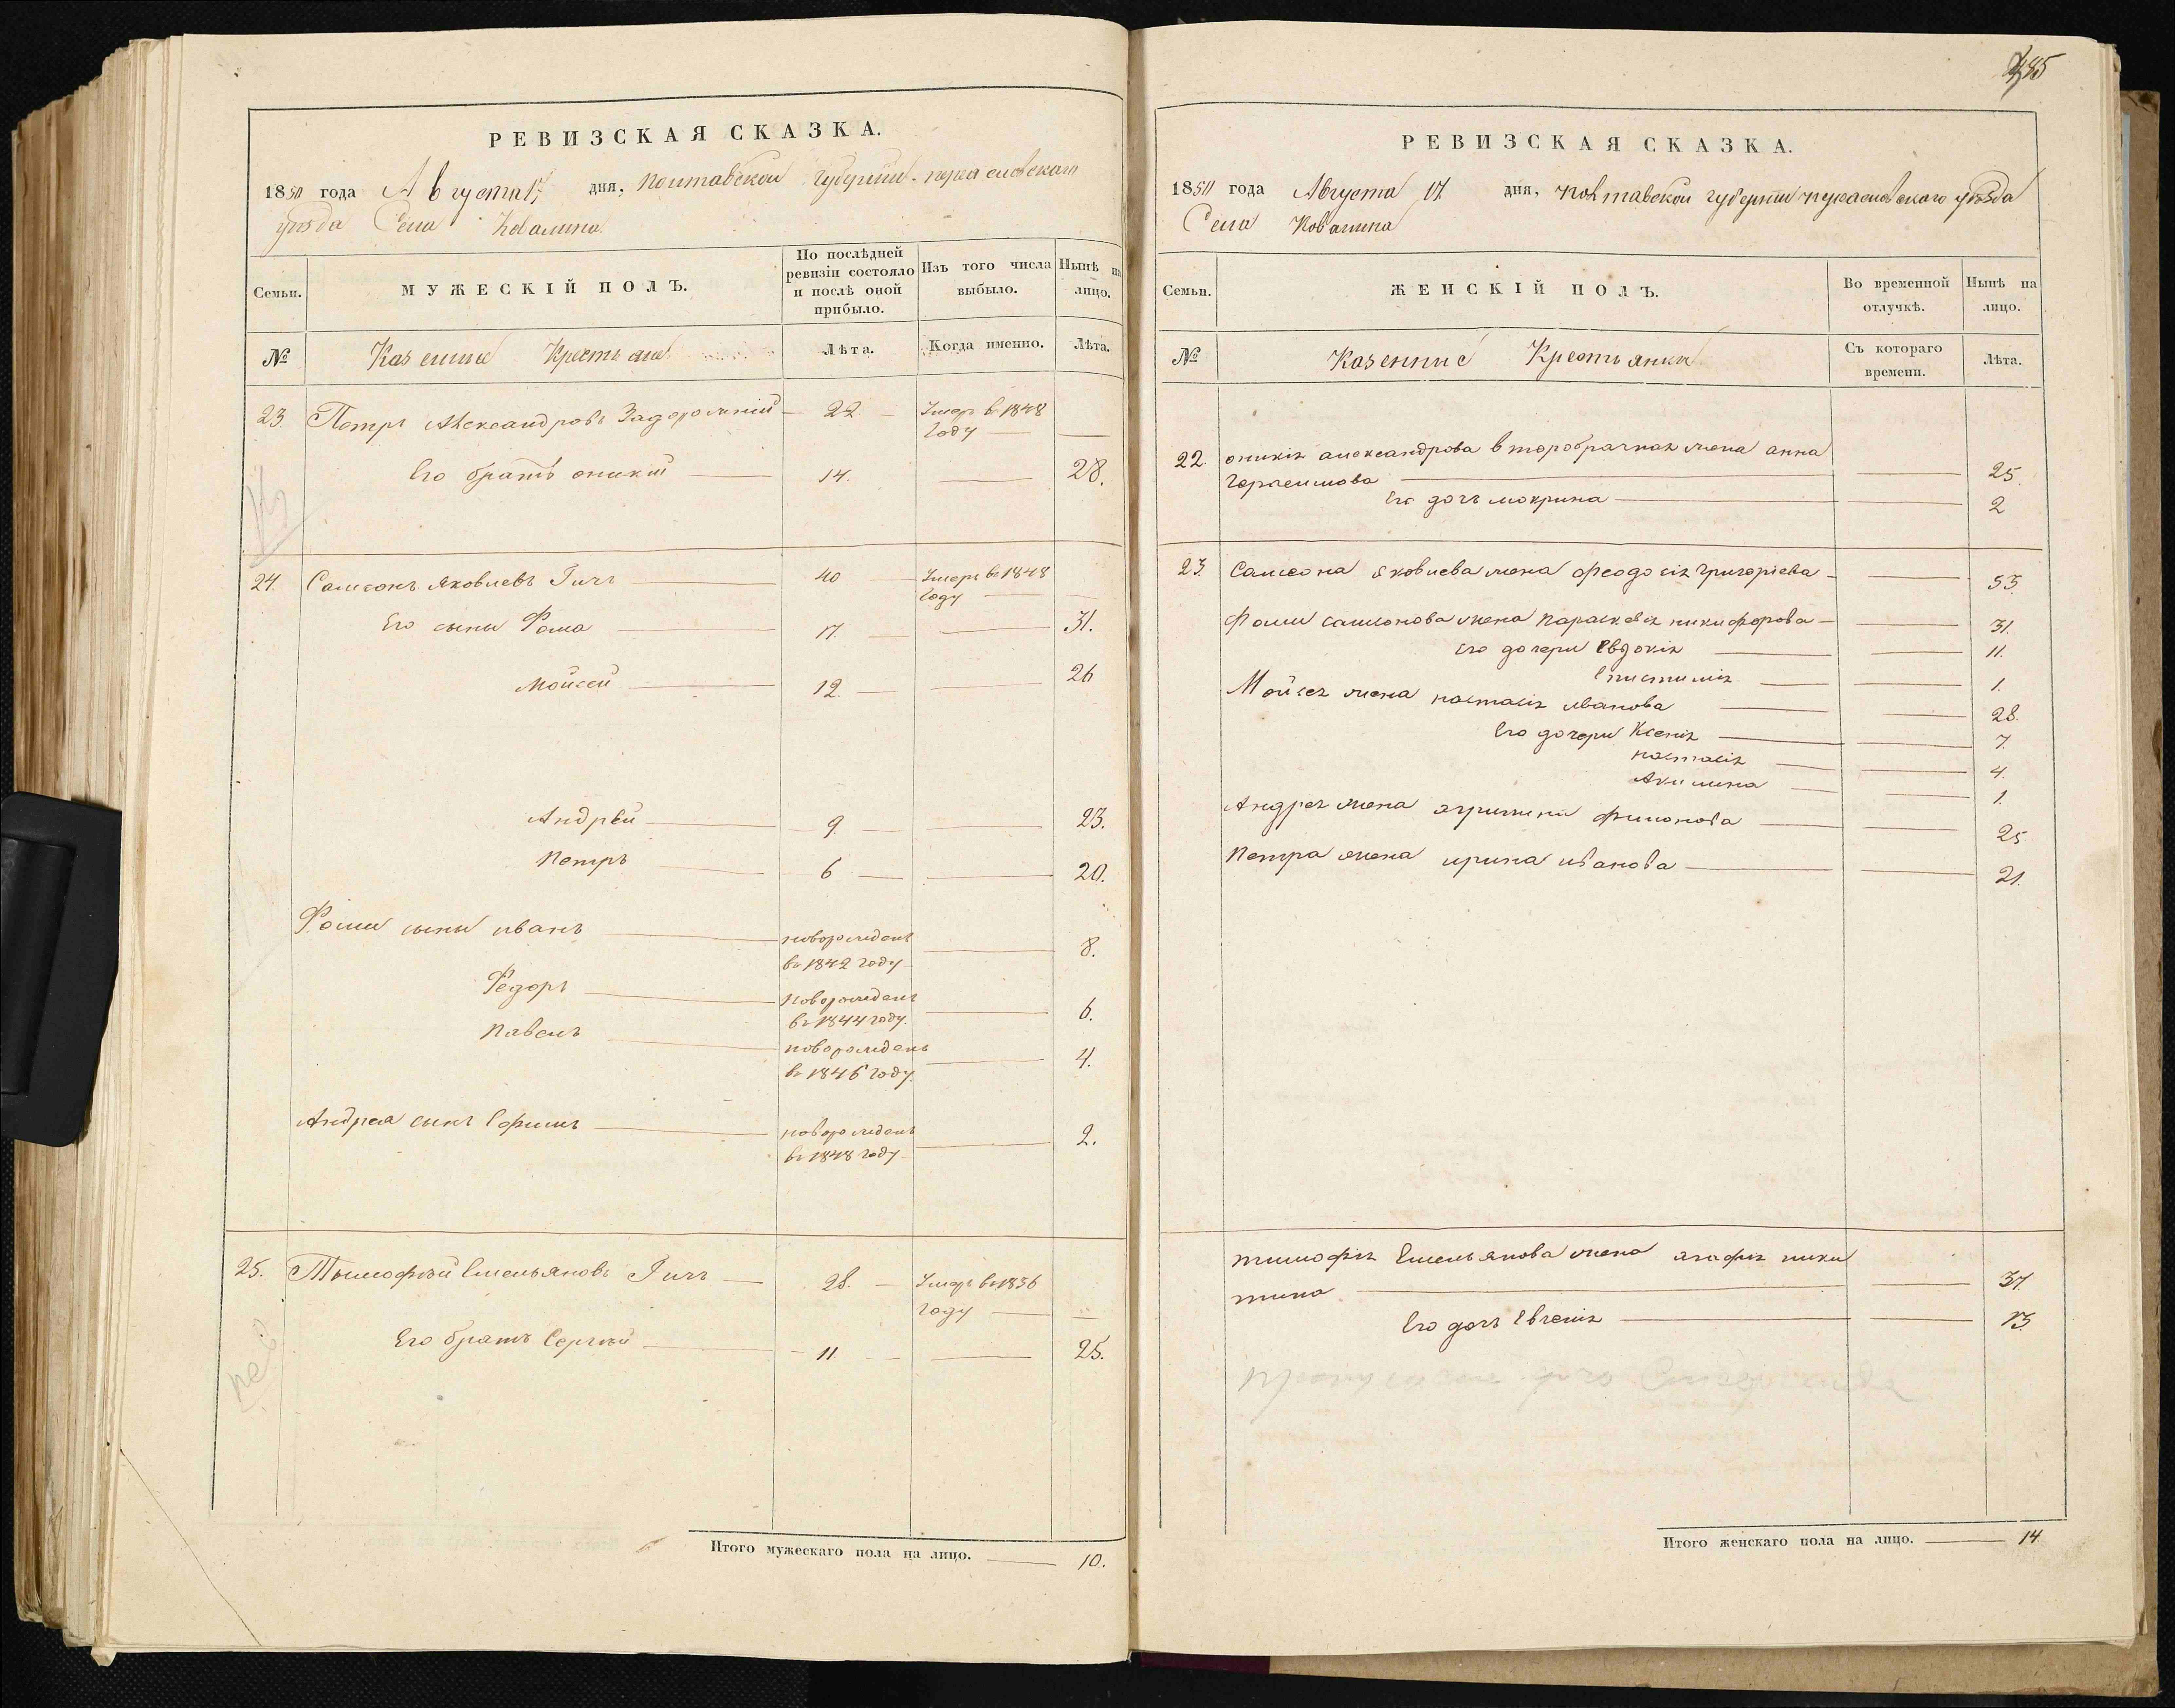 РЕВИЗСКАЯ СКАЗКА.
1850 года Августа 17 дня, Полтавской губернии переясловскаго
уѣзда Села Ковалина
Семьи.
МУЖЕСКІЙ ПОЛЪ.
По послѣдней ревизіи состояло и послѣ оной прибыло.
Изъ того числа выбыло.
Нынѣ на лицо.
№
Казенные Крестьяне
Лѣта.
Когда именно.
Лѣта.
23. Петръ Александровъ Задорожній 22 Умеръ въ 1848
году
Его братъ оникій 14. 28.
24. Самсонъ Яковлевъ Гичъ 40 Умеръ въ 1848
году
Его сыны Фома 17. 31.
Мойсей 12. 26
Андрѣй 9. 23.
Петръ 6 20.
Фомы сыны иванъ новорожденъ
въ 1842 году 8.
Федоръ Новорожденъ
въ 1844 году. 6.
Павелъ новорожденъ
въ 1846 году. 4.
Андрея сынъ Ефимъ новорожденъ
въ 1848 году 2.
25. Тымофѣй Емельяновъ Гичъ 28. Умеръ въ 1836
году
Его братъ Сергѣй 11. 25.
Итого мужескаго пола на лицо. 10.
485
РЕВИЗСКАЯ СКАЗКА.
1850 года Августа 17 дня, Полтавской губерніи переясловскаго уѣзда
Села Ковалина
Семьи.
ЖЕНСКІЙ ПОЛЪ.
Во временной отлучкѣ.
Нынѣ на лицо.
№
Казенние Крестьянки
Съ котораго времени.
Лѣта.
22. оникія александрова второбрачная жена анна
Герасимова 25.
Его дочъ мокрина 2
23. Самсона яковлева жена феодосія григоріева 53.
Фомы самсонова жена Параскевія никифорова 31.
Его дочери Евдокія 11.
Епистимія 1.
Мойсея жена настасія иванова 28.
Его дочери Ксенія 7.
настасія 4.
Акилина 1.
Андрея жена филонова 25.
Петра жена ирина иванова 21.
тимофія Емельянова жена агафія ники
тина 37.
Его дочъ Евгенія 13.
Итого женскаго пола на лицо. 14